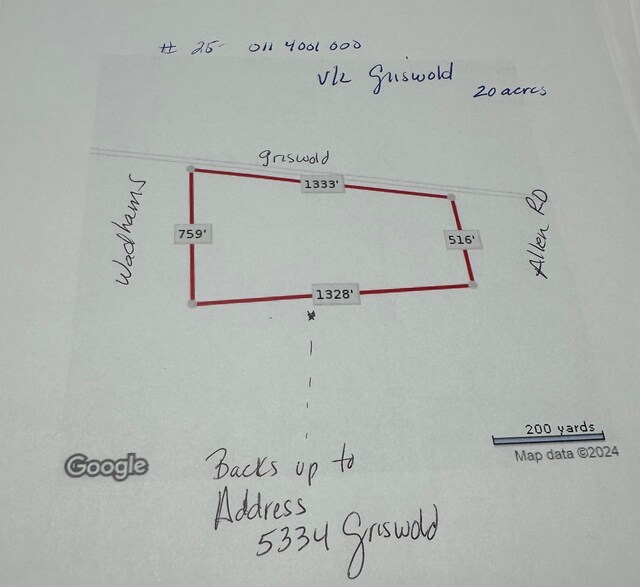 # 25- 011 4001 000
v/l Griswold
20 acres
Griswold
1333'
Wadhams
759'
516'
Allen RD
1328'
200 yards
Map data ©2024
Google
Backs up to
Address
5334 Griswold